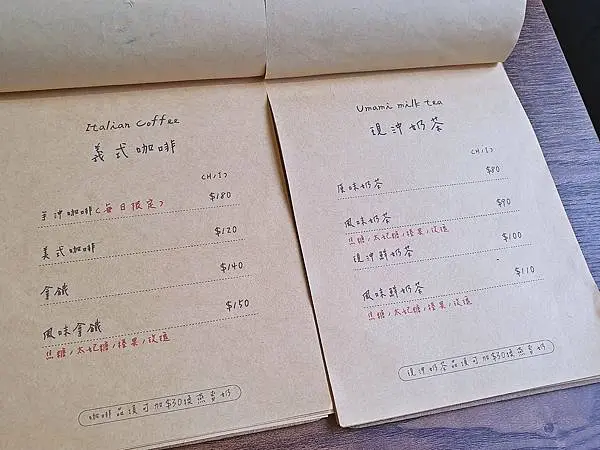 Italian Coffee
義式咖啡
(H,I)
手沖咖啡(每日限定) $180
美式咖啡 $120
拿鐵 $140
風味拿鐵 $150
焦糖/太妃糖/榛果/玫瑰
咖啡品項可加$30換燕麥奶
Umami milk tea
現沖奶茶
(H,I)
原味奶茶 $80
風味奶茶 $90
焦糖/太妃糖/榛果/玫瑰
現沖鮮奶茶 $100
風味鮮奶茶 $110
焦糖/太妃糖/榛果/玫瑰
現沖奶茶品項可加$30換燕麥奶